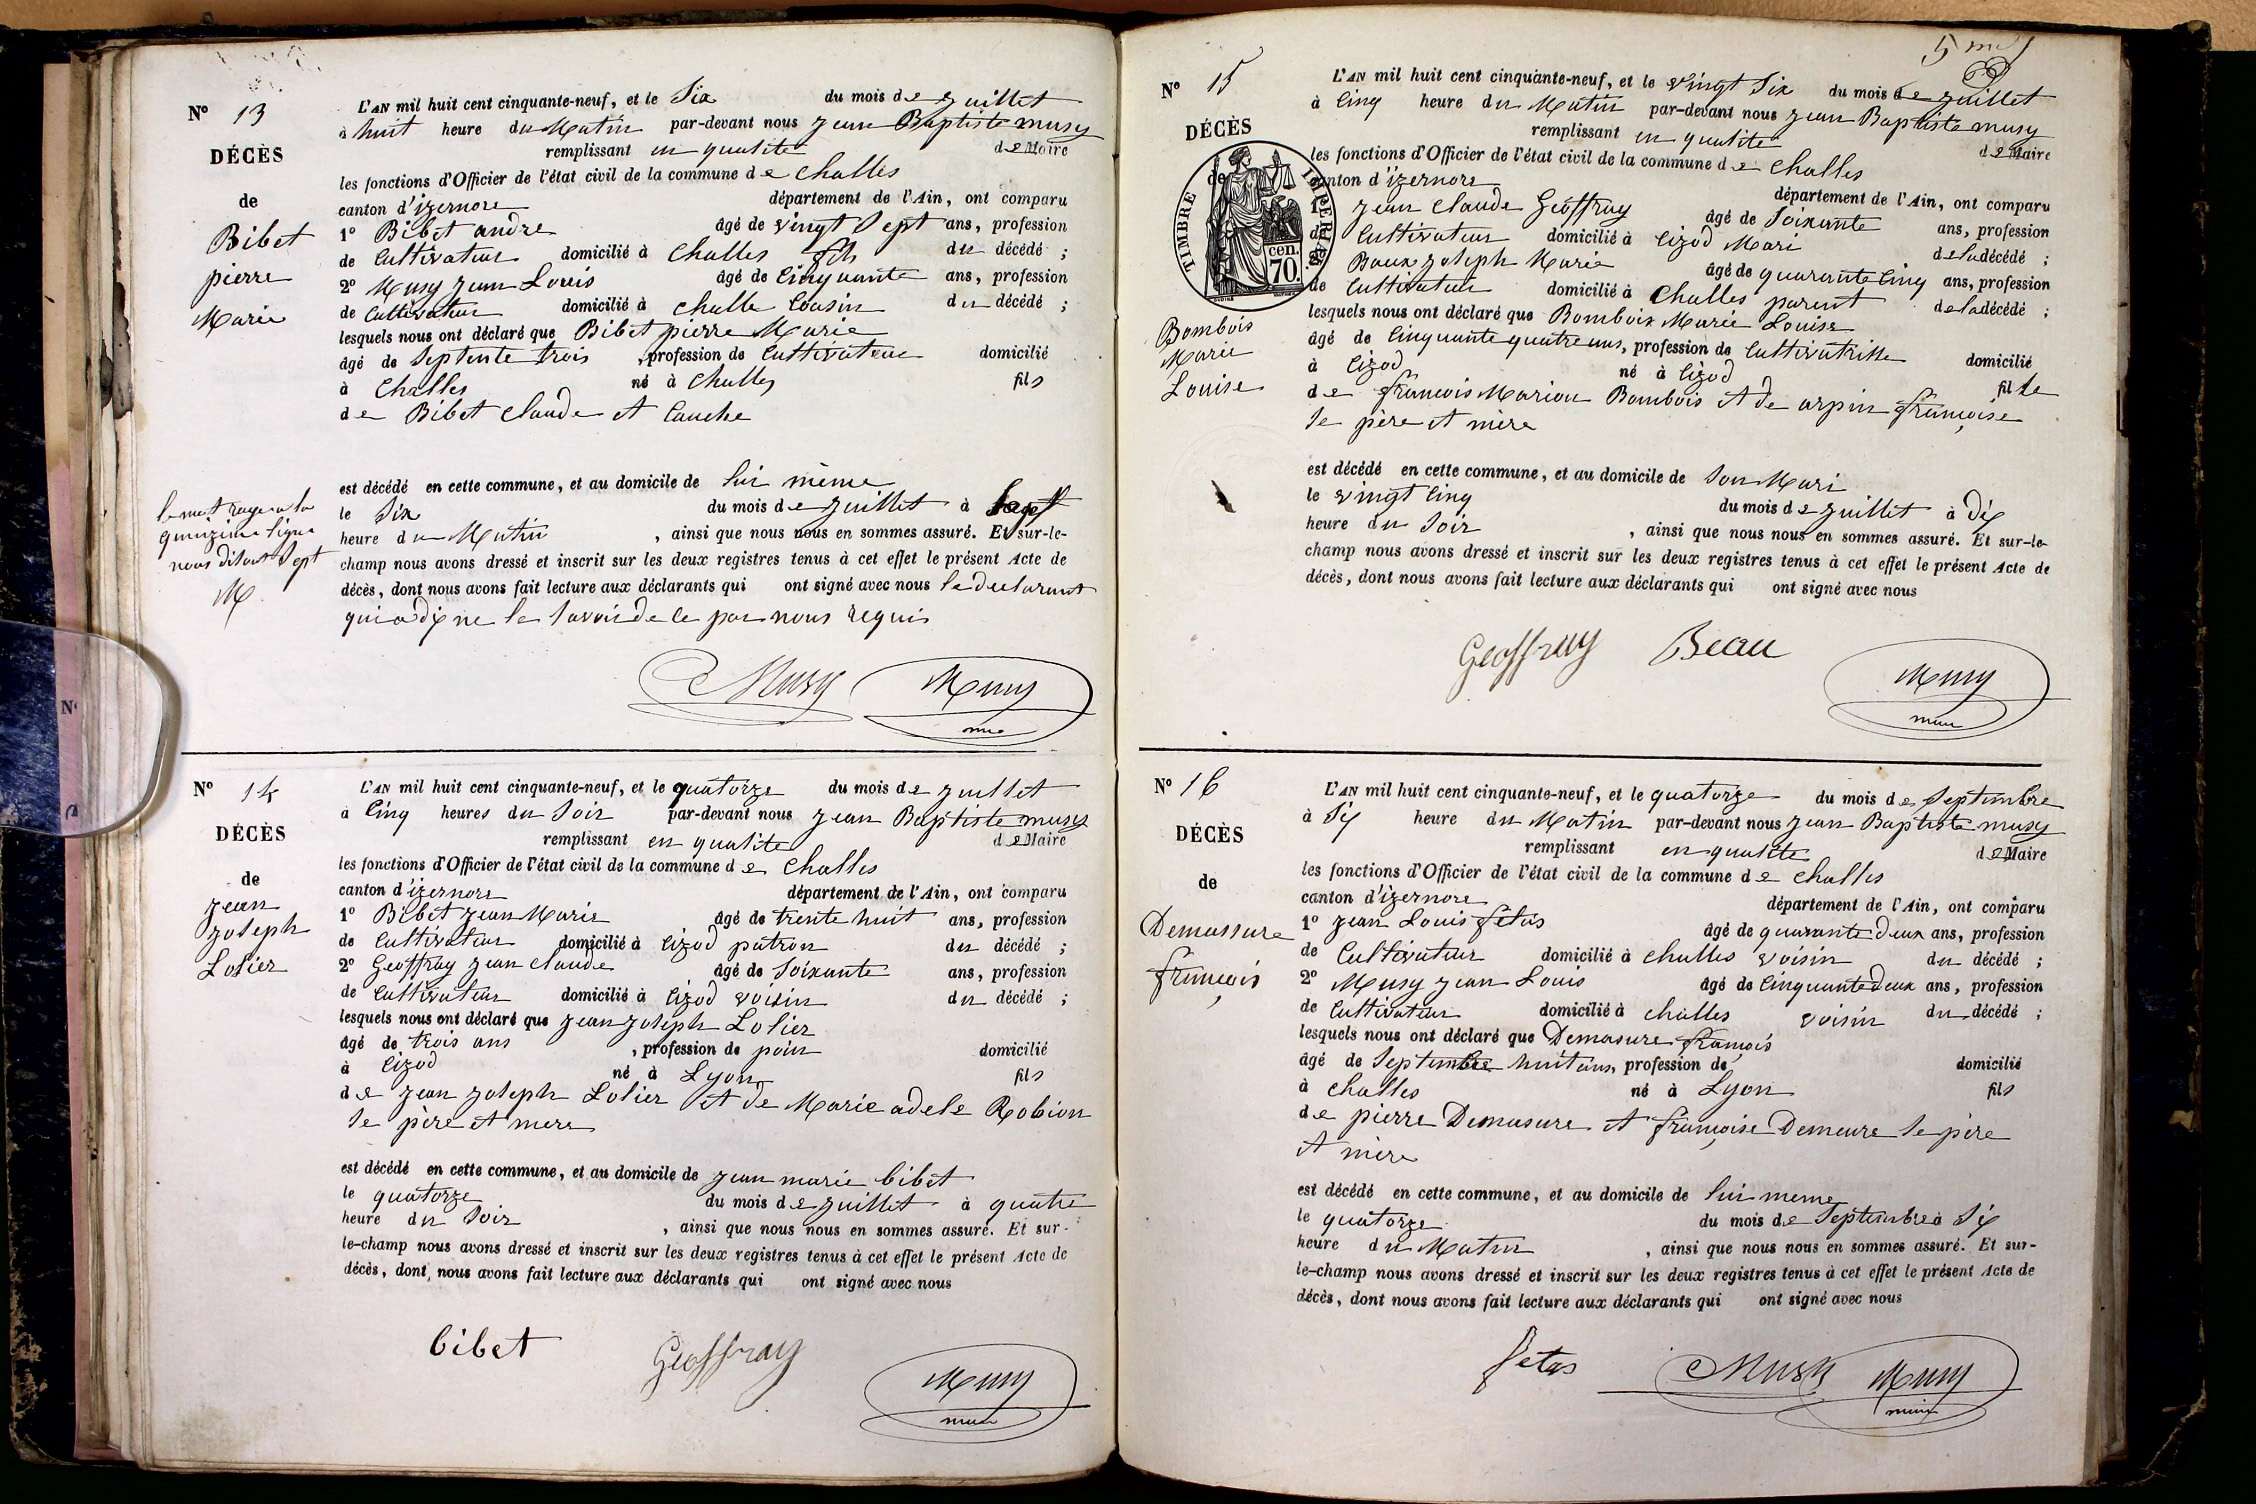 Nº 13
DÉCÈS
de
Bibet
pierre
Marie
L'AN mil huit cent cinquante-neuf, et le Six du mois de juillet
à huit heure du Matin par-devant nous jean Baptiste musy
remplissant en qualité de Maire
les fonctions d'Officier de l'état civil de la commune de Challes
canton d'izernore département de l'Ain, ont comparu
1º Bibet andre âgé de vingt Sept ans, profession
de Cultivateur domicilié à Challes fils du décédé ;
2º Musy jean Louis âgé de Cinquante ans, profession
de Cultivateur domicilié à Challe Cousin du décédé ;
lesquels nous ont déclaré que Bibet pierre Marie
âgé de Septente trois , profession de Cultivateur domicilié
à Challes né à Challes fils
de Bibet Claude et Cauche
est décédé en cette commune, et au domicile de lui même
le Six du mois de juillet à Sept
heure du Matin , ainsi que nous nous en sommes assuré. Et sur-le-
champ nous avons dressé et inscrit sur les deux registres tenus à cet effet le présent Acte de
décès, dont nous avons fait lecture aux déclarants qui ont signé avec nous le declarant
qui a dix ne le savoir de ce par nous requis
le mot rayer a la
quinzime ligne
nous disant Sept
M
Musy Musy
Nº 14
DÉCÈS
de
jean
joseph
Losier
L'AN mil huit cent cinquante-neuf, et le quatorze du mois de juillet
à Cinq heures du Soir par-devant nous jean Baptiste musy
remplissant en qualité de Maire
les fonctions d'Officier de l'état civil de la commune de Challes
canton d'izernore département de l'Ain, ont comparu
1º Bibet jean Marie âgé de trente huit ans, profession
de Cultivateur domicilié à Cizod patron du décédé ;
2º Geoffray jean claude âgé de Soixante ans, profession
de Cultivateur domicilié à Cizod voisin du décédé ;
lesquels nous ont déclaré que jean joseph Losier
âgé de trois ans , profession de poin domicilié
à Cizod né à Lyon fils
de jean joseph Losier et de Marie adele Robion
Se père et mere
est décédé en cette commune, et au domicile de jean marie bibet
le quatorze du mois de juillet à quatre
heure du Soir , ainsi que nous nous en sommes assuré. Et sur-
le-champ nous avons dressé et inscrit sur les deux registres tenus à cet effet le présent Acte de
décès, dont nous avons fait lecture aux déclarants qui ont signé avec nous
bibet Geoffray Musy
Nº 15
DÉCÈS
de
TIMBRE IMPERIAL
cen.
70
Bombois
Marie
Louise
L'AN mil huit cent cinquante-neuf, et le vingt Six du mois de juillet
à Cinq heure du Matin par-devant nous jean Baptiste musy
remplissant en qualité de Maire
les fonctions d'Officier de l'état civil de la commune de Challes
canton d'izernore département de l'Ain, ont comparu
1º jean Claude Geoffray âgé de Soixante ans, profession
de Cultivateur domicilié à Cizod Mari de la décédé ;
joseph Marie âgé de quarante Cinq ans, profession
de Cultivateur domicilié à Challes parent de la décédé ;
lesquels nous ont déclaré que Bombois Marie Louise
âgé de Cinquante quatre ans, profession de Cultivatrisse domicilié
à Cizod né à Cizod fille
de françois Marion Bombois et de arpin françoise
Se père et mère
est décédé en cette commune, et au domicile de Son Mari
le vingt Cinq du mois de juillet à dix
heure du Soir , ainsi que nous nous en sommes assuré. Et sur-le-
champ nous avons dressé et inscrit sur les deux registres tenus à cet effet le présent Acte de
décès, dont nous avons fait lecture aux déclarants qui ont signé avec nous
Geoffray Beau Musy
Nº 16
DÉCÈS
de
Demassure
françois
L'AN mil huit cent cinquante-neuf, et le quatorze du mois de Septembre
à Six heure du Matin par-devant nous jean Baptiste musy
remplissant en qualité de Maire
les fonctions d'Officier de l'état civil de la commune de Challes
canton d'izernore département de l'Ain, ont comparu
1º jean Louis fétas âgé de quarante deux ans, profession
de Cultivateur domicilié à Challes voisin du décédé ;
2º Musy jean Louis âgé de Cinquante deux ans, profession
de Cultivateur domicilié à Challes voisin du décédé ;
lesquels nous ont déclaré que Demasure françois
âgé de Septembre huit ans, profession de domicilié
à Challes né à Lyon fils
de pierre Demasure et françoise Demeure Se père
et mère
est décédé en cette commune, et au domicile de lui meme
le quatorze du mois de Septembre à Six
heure du Matin , ainsi que nous nous en sommes assuré. Et sur-
le-champ nous avons dressé et inscrit sur les deux registres tenus à cet effet le présent Acte de
décès, dont nous avons fait lecture aux déclarants qui ont signé avec nous
fetas Musy Musy